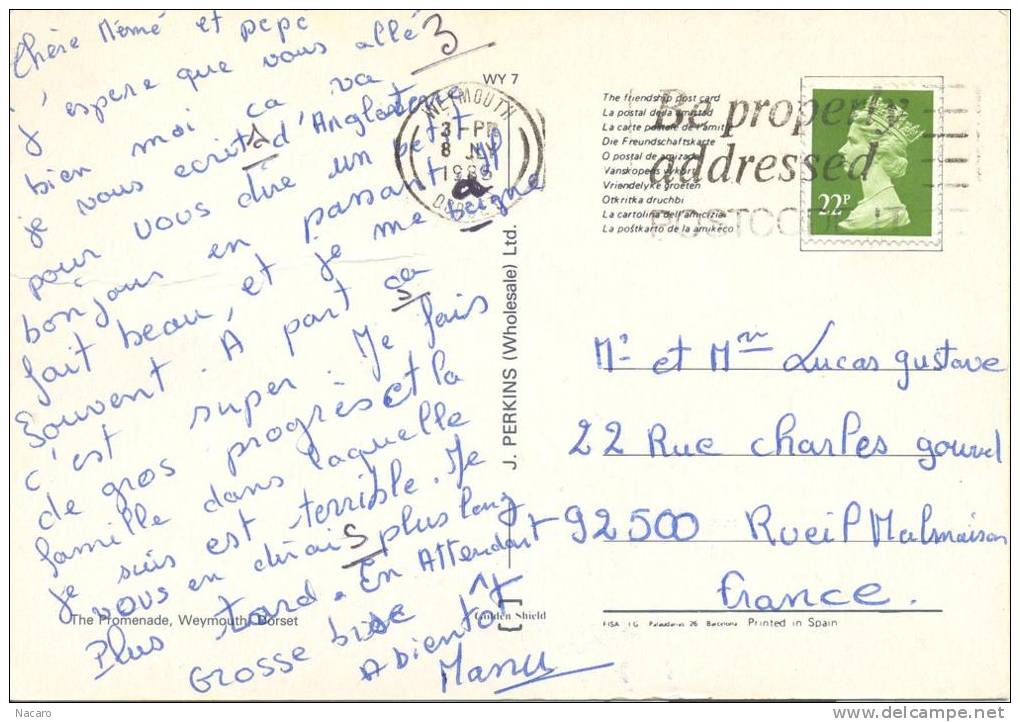 Chère Mémé et pepe
j'espere que vous allé
bien moi ca va
je vous ecrit d'Angleterre
pour vous dire un petit
bonjour en passant il
fait beau, et je me baigne
souvent. A part ca
c'est super. Je fais
de gros progrès et la
famille dans laquelle
je suis est terrible. Je
vous en dirais plus long
Plus tard. En Attendant
GROSSE bise
A bientôt
Manu
3
s
a
s
s
The Promenade, Weymouth, Dorset
WY 7
J. PERKINS (Wholesale) Ltd.
Golden Shield
WEYMOUTH
3 - PM
8 JLY
DORSET
The friendship post card
La postal de la amistad
La carte postale de l'amitié
Die Freundschaftskarte
O postal de amizade
Vanskopens vykort
Vriendelyke groeten
Otkritka druchbi
La cartolina dell'amicizia
La poŝtkarto de la amikeco
Be properly
addressed
POSTCODE IT
22P
Mr et Mme Lucas gustave
22 Rue charles gouvel
92500 Rueil Malmaison
France.
FISA I.G. Palaudarias 26 Barcelona Printed in Spain
Nacaro
www.delcampe.net